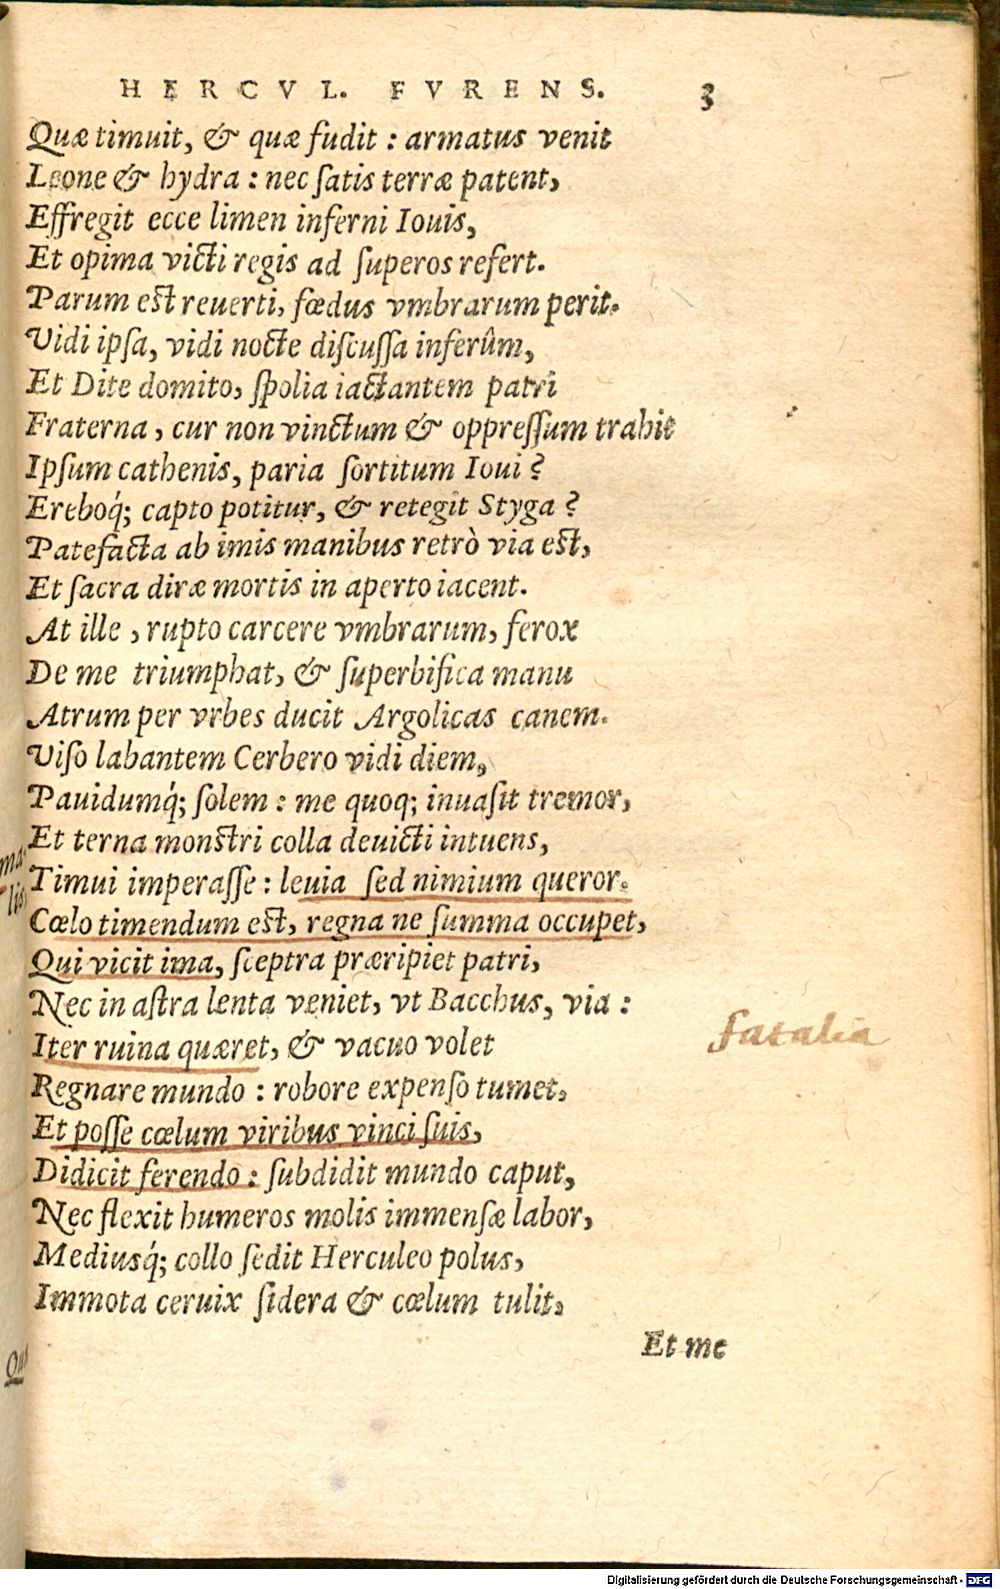 HERCVL. FVRENS. 3
Quæ timuit, & quæ fudit : armatus venit
Leone & hydra : nec ſatis terræ patent,
Effregit ecce limen inferni Iouis,
Et opima victi regis ad ſuperos refert.
Parum est reuerti, fœdus vmbrarum perit.
Vidi ipſa, vidi nocte diſcuſſa inferûm,
Et Dite domito, ſpolia iactantem patri
Fraterna, cur non vinctum & oppreſſum trahit
Ipſum cathenis, paria ſortitum Ioui ?
Ereboq́; capto potitur, & retegit Styga ?
Patefacta ab imis manibus retrò via est,
Et ſacra diræ mortis in aperto iacent.
At ille, rupto carcere vmbrarum, ferox
De me triumphat, & ſuperbifica manu
Atrum per vrbes ducit Argolicas canem.
Viſo labantem Cerbero vidi diem,
Pauidumq́; ſolem : me quoq; inuaſit tremor,
Et terna monstri colla deuicti intuens,
Timui imperaſſe : leuia ſed nimium queror.
Cœlo timendum est, regna ne ſumma occupet,
Qui vicit ima, ſceptra præripiet patri,
Nec in aſtra lenta veniet, vt Bacchus, via :
fatalia
Iter ruina quæret, & vacuo volet
Regnare mundo : robore expenſo tumet,
Et poſſe cœlum viribus vinci ſuis,
Didicit ferendo : ſubdidit mundo caput,
Nec flexit humeros molis immenſæ labor,
Mediusq́; collo ſedit Herculeo polus,
Immota ceruix ſidera & cœlum tulit,
Et me
Digitalisierung gefördert durch die Deutsche Forschungsgemeinschaft - DFG